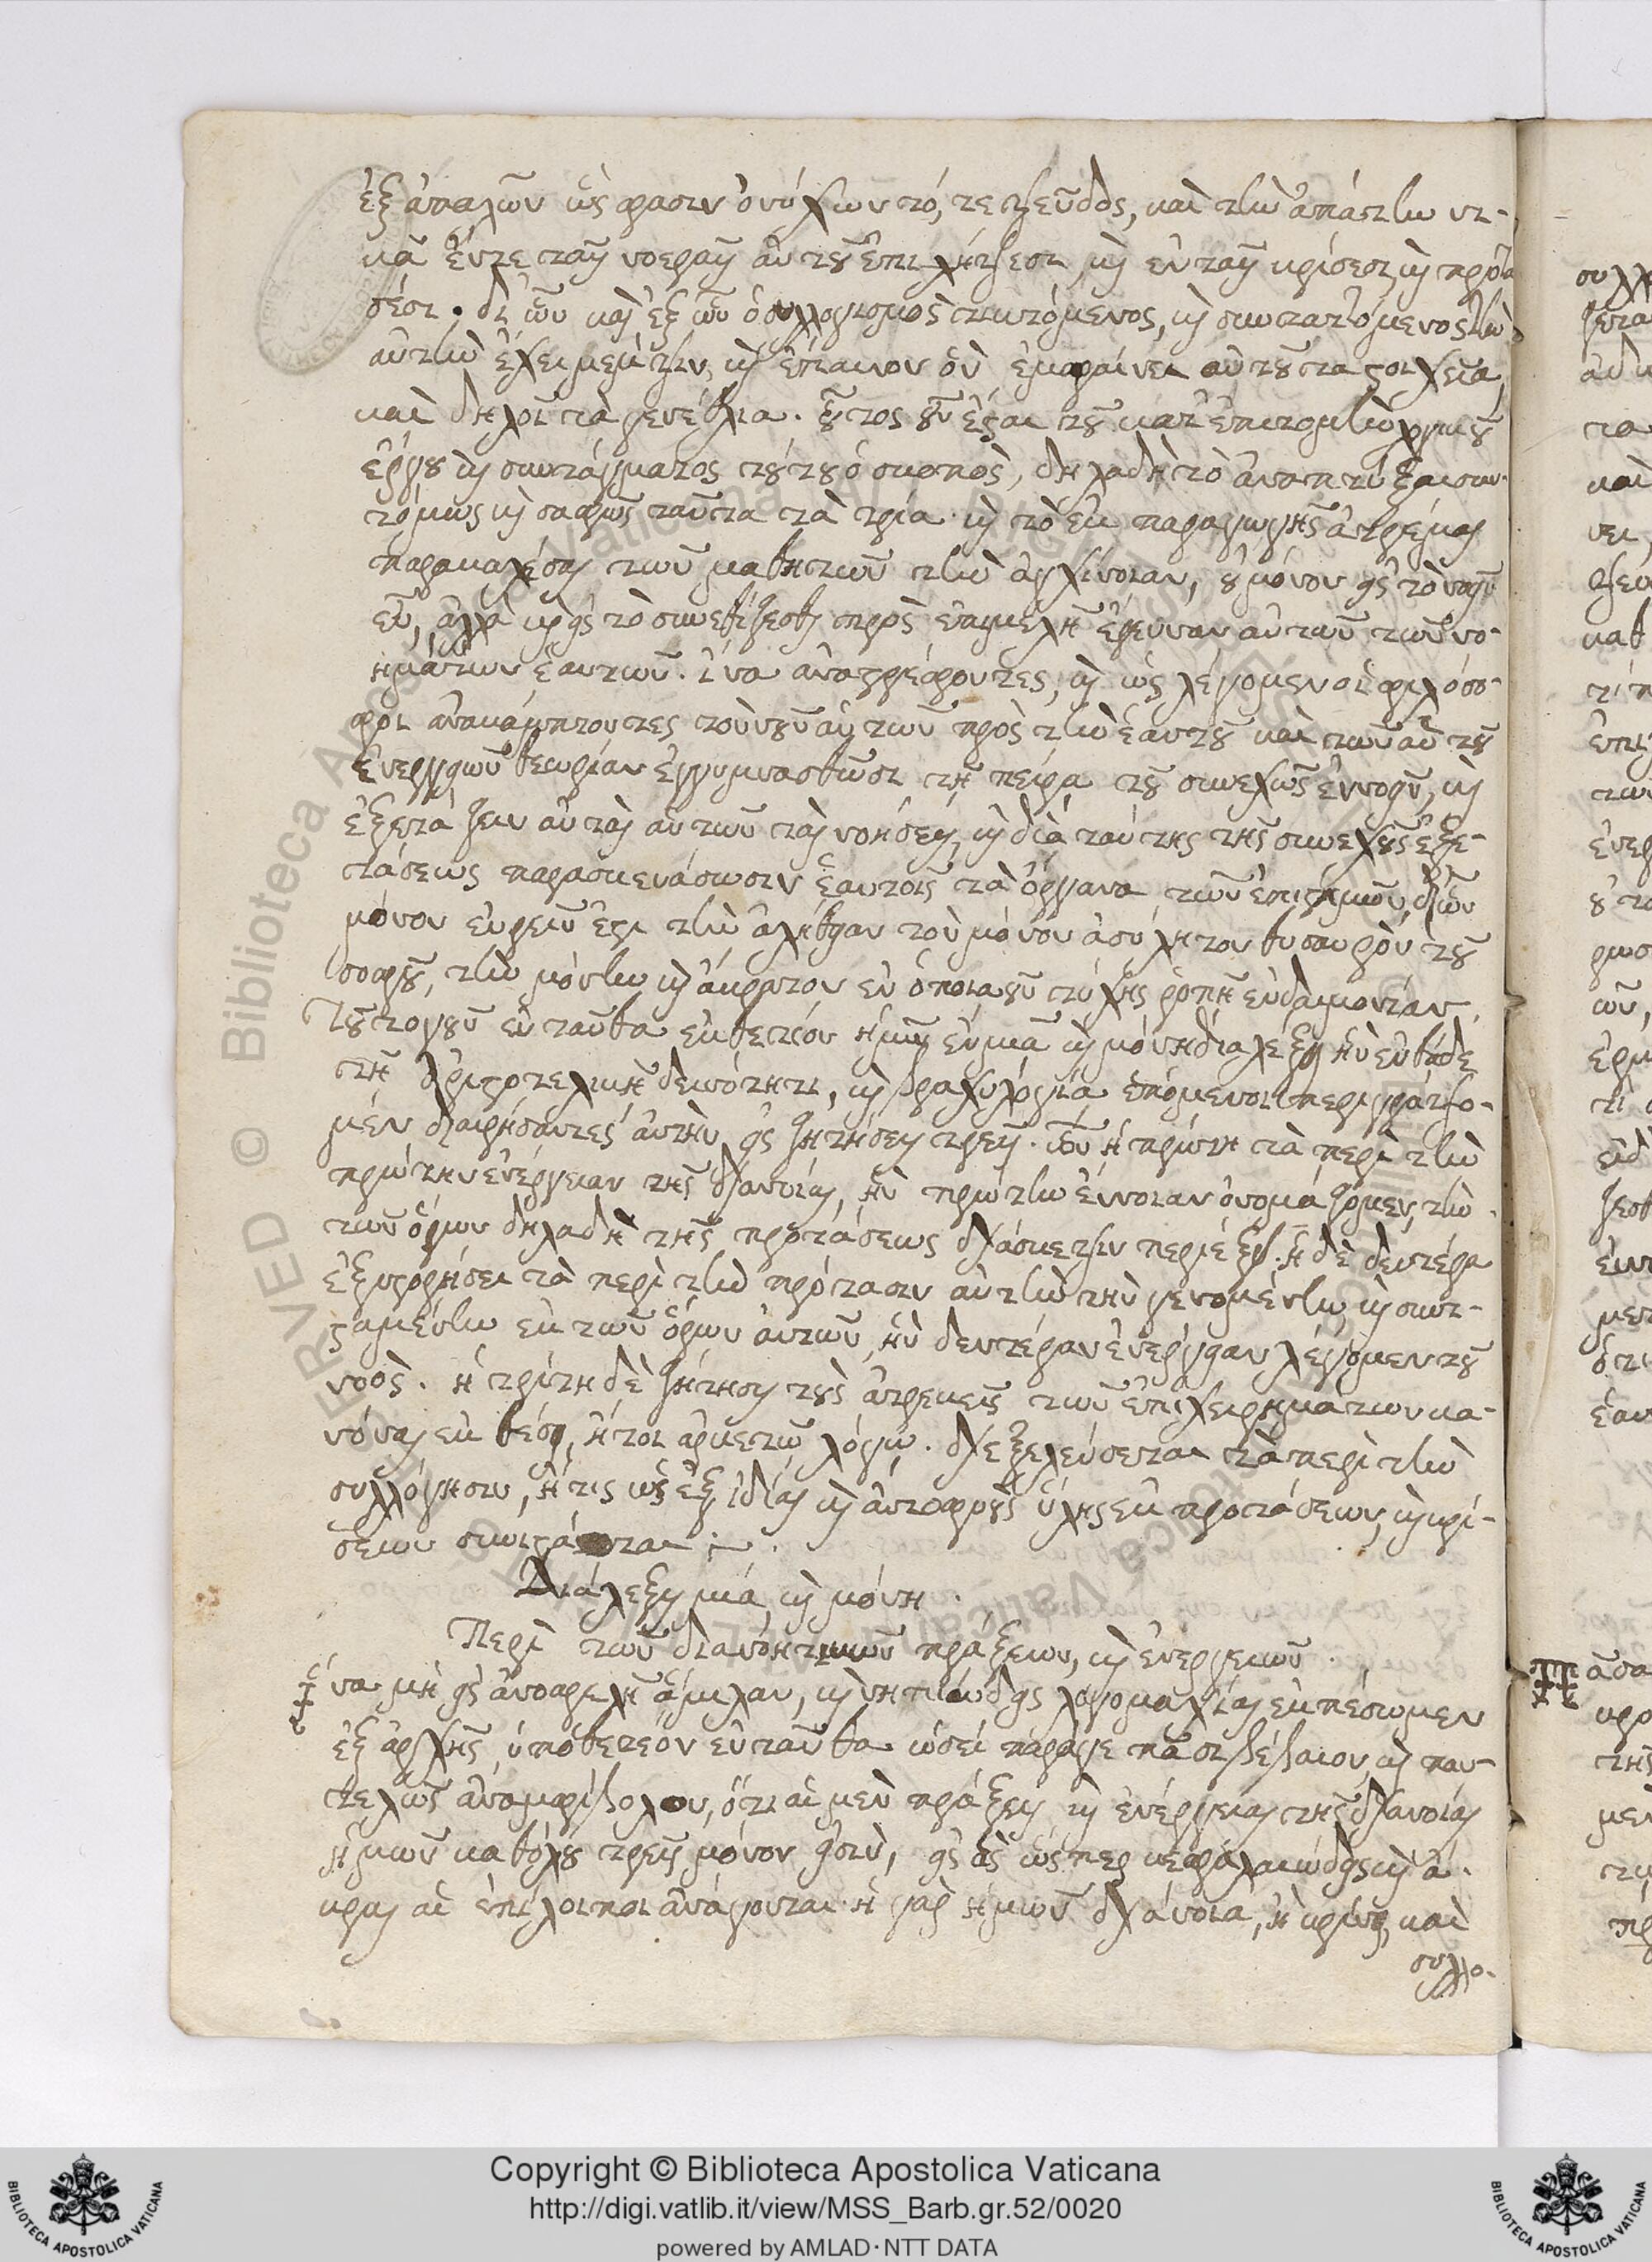 ἐξ ἁπαλῶν ὥς φασιν ὀνύχων τό, τε ψεῦδος, καὶ τὴν ἀπάτην νι-
κᾷ ἔντε ταῖς νοεραῖς αὐτοῦ ἐπιλήψεσι καὶ ἐν ταῖς κρίσεσι καὶ προτά
σέσι. δι' ὧν καὶ ἐξ ὧν ὁ συλλογισμὸς τικτόμενος, καὶ συνταττόμενος τὴν
αὐτὴν ἔχει μέμψιν, καὶ ἔπαινον ὃν ἐμφαίνει αὐτοῦ τὰ στοιχεῖα,
καὶ δηλοῖ τὰ γενέθλια. οὗτος οὖν ἔσται τοῦ κατ' ἐπιτομὴν λογικοῦ
ἔργου καὶ συντάγματος τούτου ὁ σκοπὸς, δηλαδὴ τὸ ἀναπτύξαι συν-
τόμως καὶ σαφῶς ταῦτα τὰ τρία. καὶ τὸ ἐκ παραγωγῆς ἀτρέμας
παρακαλέσαι τῶν μαθητῶν τὴν ἀγχίνοιαν, οὐ μόνον εἰς τὸ νοεῖν
ἀλλὰ καὶ εἰς τὸ συνεθίζεσθαι πρὸς ἐπιμελῆ ἔρευναν αὐτῶν τῶν νο-
ημάτων ἑαυτῶν. ἵνα ἀναστρέφοντες, καὶ ὡς λέγομεν οἱ φιλόσο-
φοι ἀνακάμπτοντες τὸν νοῦν αὐτῶν πρὸς τὴν ἑαυτοῦ καὶ τῶν αὐτοῦ
ἐνεργειῶν θεωρίαν ἐγγυμνασθῶσι τῇ πείρᾳ τοῦ συνεχῶς ἐννοεῖν, καὶ
ἐξετάζειν αὐτὰς αὐτῶν τὰς νοήσεις, καὶ διὰ ταύτης τῆς συνεχοῦς ἐξε-
τάσεως παρασκευάσωσιν ἑαυτοῖς τὰ ὄργανα τῶν ἐπιστημῶν, δι' ὧν
μόνον εὑρεῖν ἔστι τὴν ἀλήθειαν τὸν μόνον ἀσύλητον θησαυρὸν τοῦ
σοφοῦ, τὴν μόνην καὶ ἄκρατον ἐν ὁποιαοῦν τύχης ῥοπῇ εὐδαιμονίαν.
Τοῦτο γοῦν ἐνταῦθα ἐκθετέον ἡμῖν ἐν μιᾷ καὶ μόνῃ διαλέξει ἣν ἐνθάδε
τῇ ἀριστοτελικῇ δεινότητι, καὶ βραχυλογίᾳ ἑπόμενοι περιγράψο-
μεν διαιρήσαντες αὐτὴν εἰς ζητήσεις τρεῖς. ὧν ἡ πρώτη τὰ περὶ τὴν
πρώτην ἐνέργειαν τῆς διανοίας, ἣν πρώτην ἔννοιαν ὀνομάζομεν, τὴν
τῶν ὅρων δηλαδὴ τῆς προτάσεως διάσκεψιν περιέξει. ἡ δὲ δευτέρα
ἐξιστορήσει τὰ περὶ τὴν πρότασιν αὐτὴν τὴν γενομένην, καὶ συνι-
σταμένην ἐκ τῶν ὅρων αὐτῶν, ἣν δευτέραν ἐνέργειαν λέγομεν τοῦ
νοός. ἡ τρίτη δὲ ζήτησις τοὺς ἀτρεκεῖς τῶν ἐπιχειρημάτων κα-
νόνας ἐκθέσει, ἤτοι ἀρκετῷ λόγῳ. διεξελεύσεται τὰ περὶ τὴν
συλλόγησιν, ἥτις ὡς ἐξ ἰδίας καὶ αὐτοφυοῦς ὕλης ἐκ προτάσεων, καὶ κρί-
σεων συνίσταται.
Διάλεξις μία, καὶ μόνη.
Περὶ τῶν διανοητικῶν πράξεων, καὶ ἐνεργειῶν.
ἵνα μὴ εἰς ἀνωφελῆ ἅμιλλαν, καὶ νηπιώδεις λογομαχίας ἐμπέσωμεν
ἐξ ἀρχῆς ὑποθετέον ἐνταῦθα ὡσεὶ παράγε πᾶσι βέβαιον, καὶ παν-
τελῶς ἀναμφίβολον, ὅτι αἱ μὲν πράξεις καὶ ἐνέργειαι τῆς διανοίας
ἡμῶν καθόλου τρεῖς μόνον εἰσὶν, εἰς ἃς ὥσπερ κεφαλαιώδεις καὶ ἄ-
κρας αἱ ἐπίλοιποι ἀνάγονται. ἡ γὰρ ἡμῶν διάνοια, ἢ κρίνει, καὶ
συλλο-
Copyright © Biblioteca Apostolica Vaticana
http://digi.vatlib.it/view/MSS_Barb.gr.52/0020
powered by AMLAD·NTT DATA